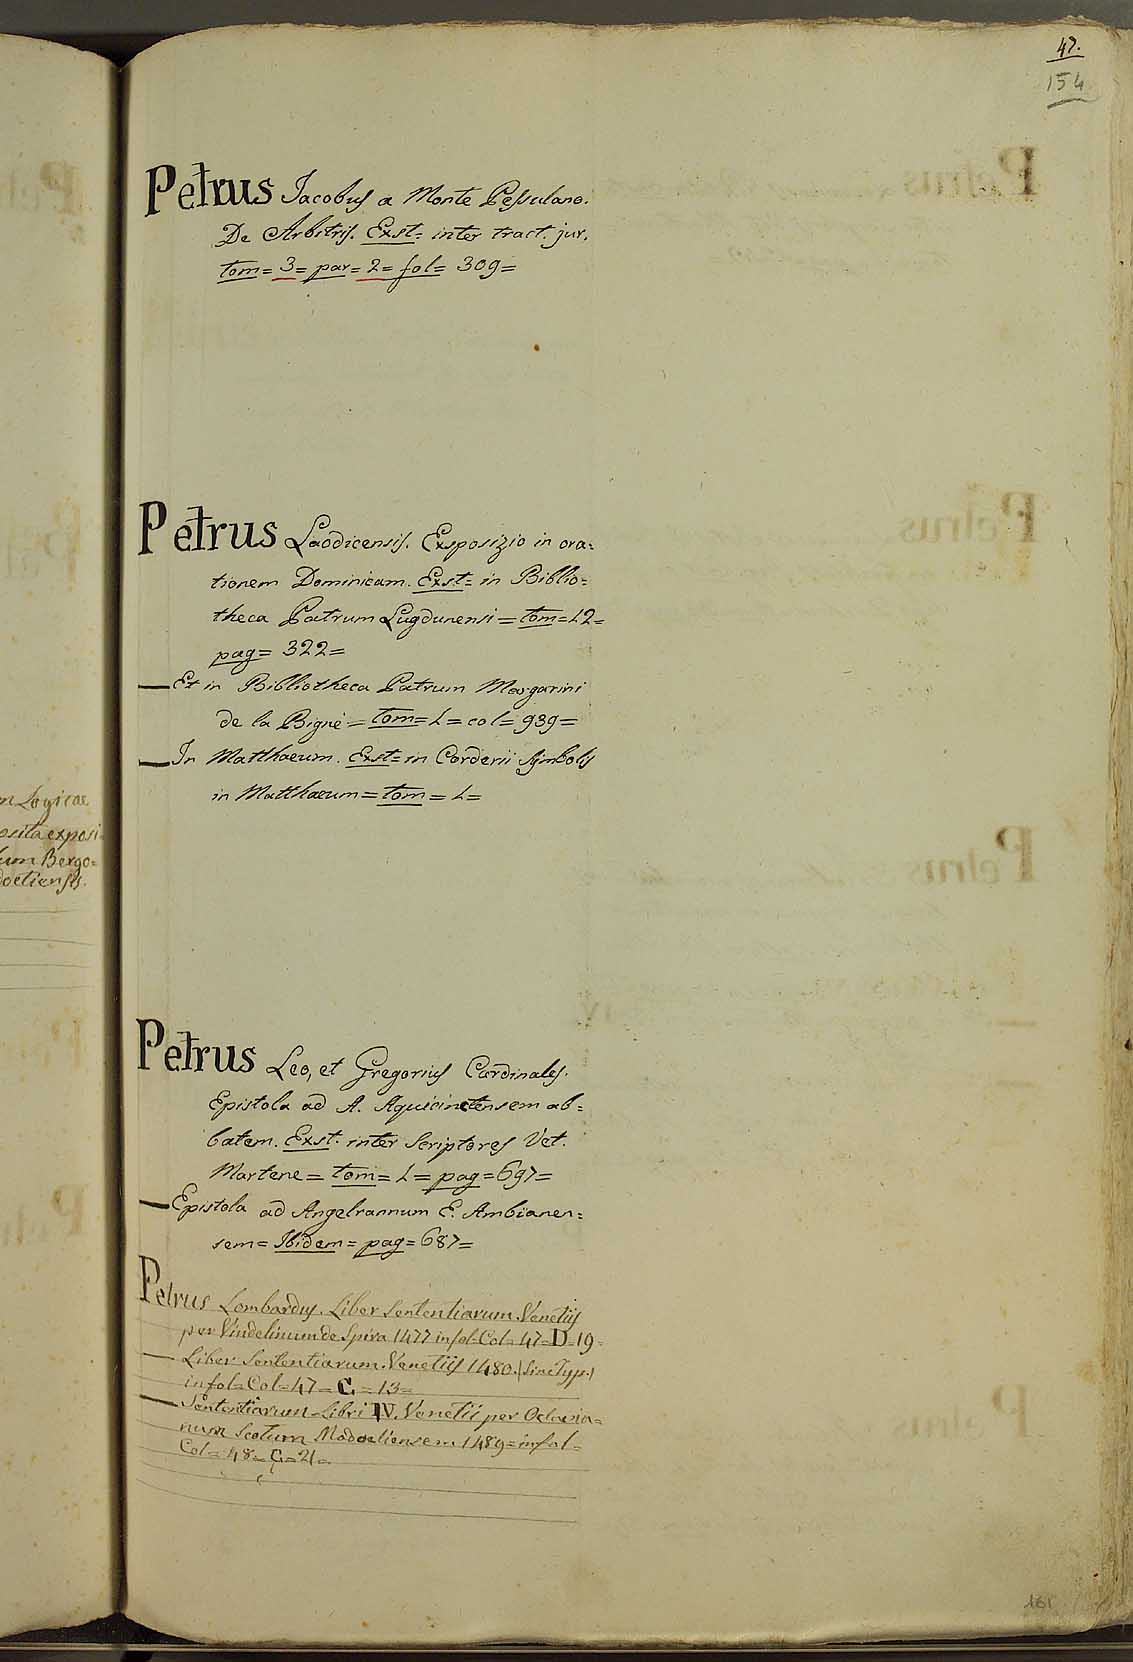 47.
154
Petrus Jacobus a Monte Pessulano.
De Arbitris. Exst= inter tract. jur.
tom= 3= par= 2= fol= 309=
Petrus Laodicensis. Exsposizio in ora=
tionem Dominicam. Exst= in Biblio=
theca Patrum Lugdunensi= tom= 12=
pag= 322=
Et in Bibliotheca Patrum Margarini
de la Bigne= tom= 1= col= 939=
In Matthaeum. Exst= in Corderii Symbolis
in Matthaeum= tom= 1=
Petrus Leo, et Gregorius Cardinales.
Epistola ad A. Aquicinctensem ab=
batem. Exst. inter Scriptores Vet.
Martene= tom= 1= pag= 697=
Epistola ad Angelrannum E. Ambianen=
sem= Ibidem= pag= 687=
Petrus Lombardus. Liber Sententiarum. Venetiis
per Vindelinum de Spira 1477 in fol= Col= 47= D= 19=
Liber Sententiarum. Venetiis 1480. (Sine Typ.)
in fol= Col= 47= C= 13=
Sententiarum Libri IV. Venetiis per Octavia=
num Scotum Modoetiensem. 1489= in fol=
Col= 48= C= 21=
n Logicae
osita exposi=
um Bergo=
doetiensis.
161